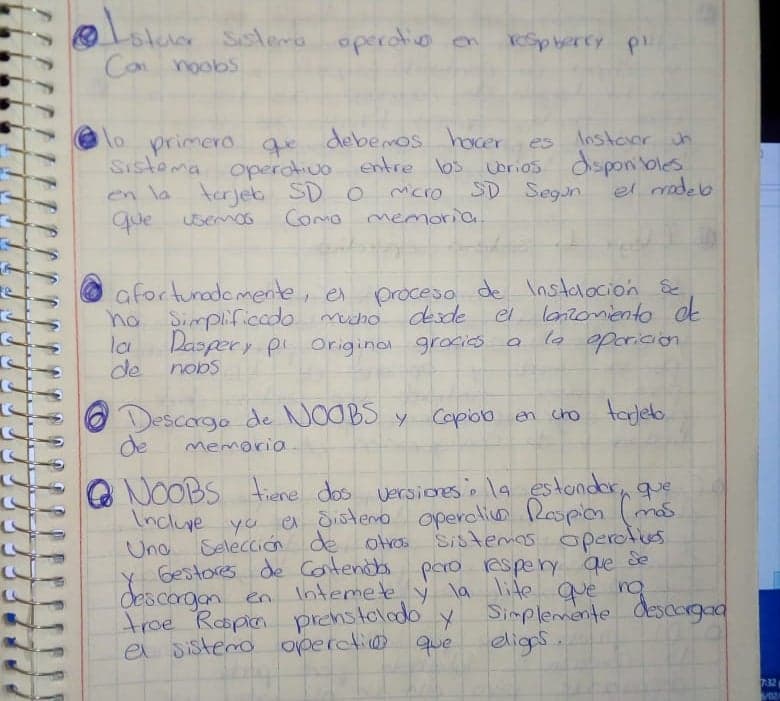 Istalar sistema operativo en raspberry pi
Con noobs
lo primero que debemos hacer es Instalar un
sistema operativo entre los varios disponibles
en la tarjeta SD o micro SD Segun el modelo
que usemos Como memoria
afortunadamente, el proceso de Instalacion se
ha simplificado mucho desde el lanzamiento de
la Raspery pi original gracias a la aparicion
de nobs
Descarga de NOOBS y Copialo en una tarjeta
de memoria.
NOOBS tiene dos versiones: la estandar, que
Incluye ya el Sistema operativo Raspian (mas
Una Selección de otros sistemas operativos
y Gestores de Contenido para respery que se
descargan en Internete y la lite que no
trae Raspian preinstalado y Simplemente descargad
el sistema operativo que eligas.
7:32